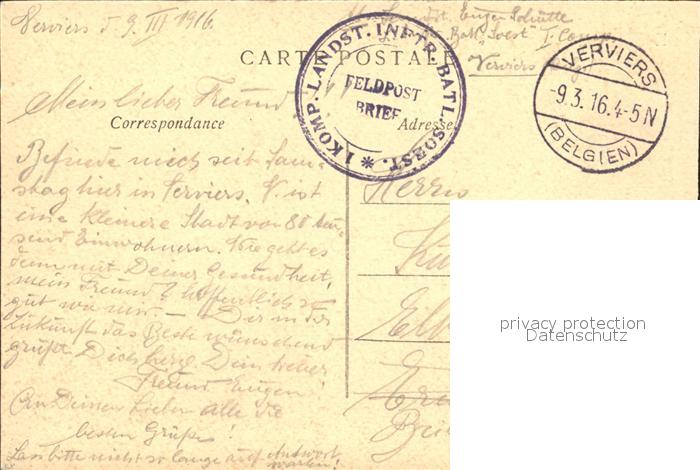 Verviers d. 9. III 1916.
Eugen Schütte
Batl. "Soest" I. Comp.
Verviers
CARTE POSTALE
I KOMP. LANDST. INFTR. BATL. SOEST. *
FELDPOST
BRIEF
VERVIERS
-9.3.16.4-5N
(BELGIEN)
Mein lieber Freund
Correspondance
Adresse
Befinde mich seit Sam-
stag hier in Verviers. V. ist
eine kleinere Stadt von 80 tau-
send Einwohnern. Wie geht es
denn mit Deiner Gesundheit,
mein Freund? Hoffentlich so
gut wie mir. — Dir in der
Zukunft das Beste wünschend
grüßt Dich herzl. Dein treuer
Freund Eugen
An Deinen Lieben alle die
besten Grüße!
Lass bitte nicht so lange auf Antwort
warten!
Herrn
privacy protection
Datenschutz